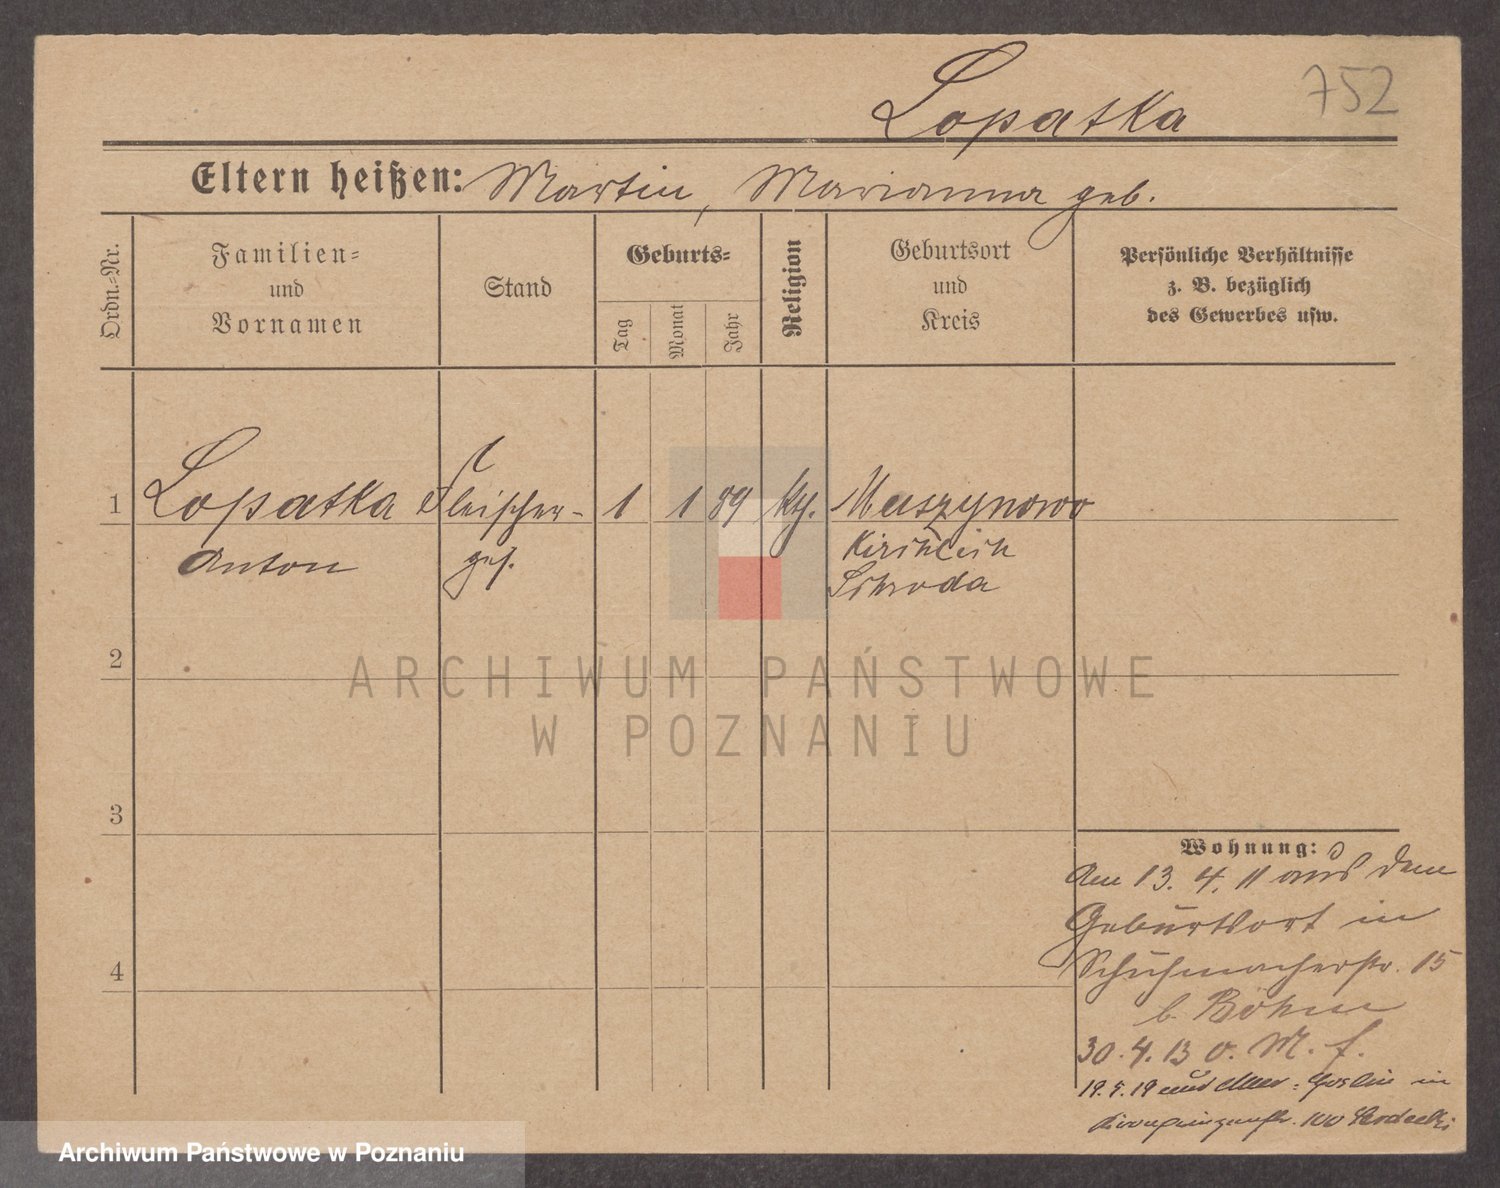 Lopatka
752
Eltern heißen: Martin, Marianna geb.
Ordn.-Nr.
Familien-
und
Vornamen
Stand
Geburts-
Tag
Monat
Jahr
Religion
Geburtsort
und
Kreis
Persönliche Verhältnisse
z. B. bezüglich
des Gewerbes usw.
1 Lopatka Fleischer- 1 1 89 kth. Muszynowo
Anton ges. Kirchlich
Schroda
2
3
4
Wohnung:
Am 13. 4. 11 aus dem
Geburtsort in
Schuhmacherstr. 15
b. Böhm
30. 4. 13 o. M. f.
19. 5. 19 aus Goslin in
Kronprinzenstr. 100
ARCHIWUM PAŃSTWOWE
W POZNANIU
Archiwum Państwowe w Poznaniu